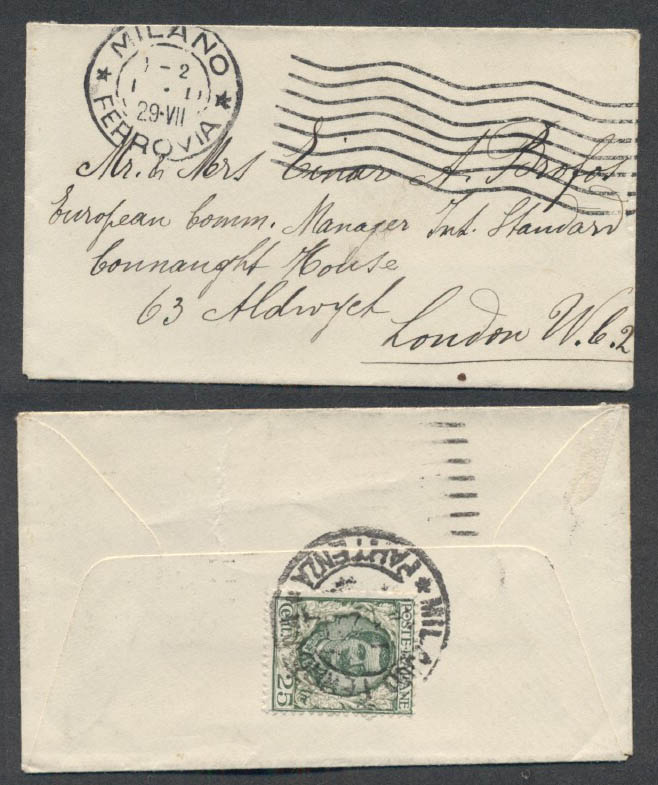 MILANO
29·VII
FERROVIA
Mr. & Mrs Einar A. Brofos
European Comm. Manager Int. Standard
Connaught House
63 Aldwych
London W.C.2
PARTENZA
POSTE ITALIANE
CENT. 25